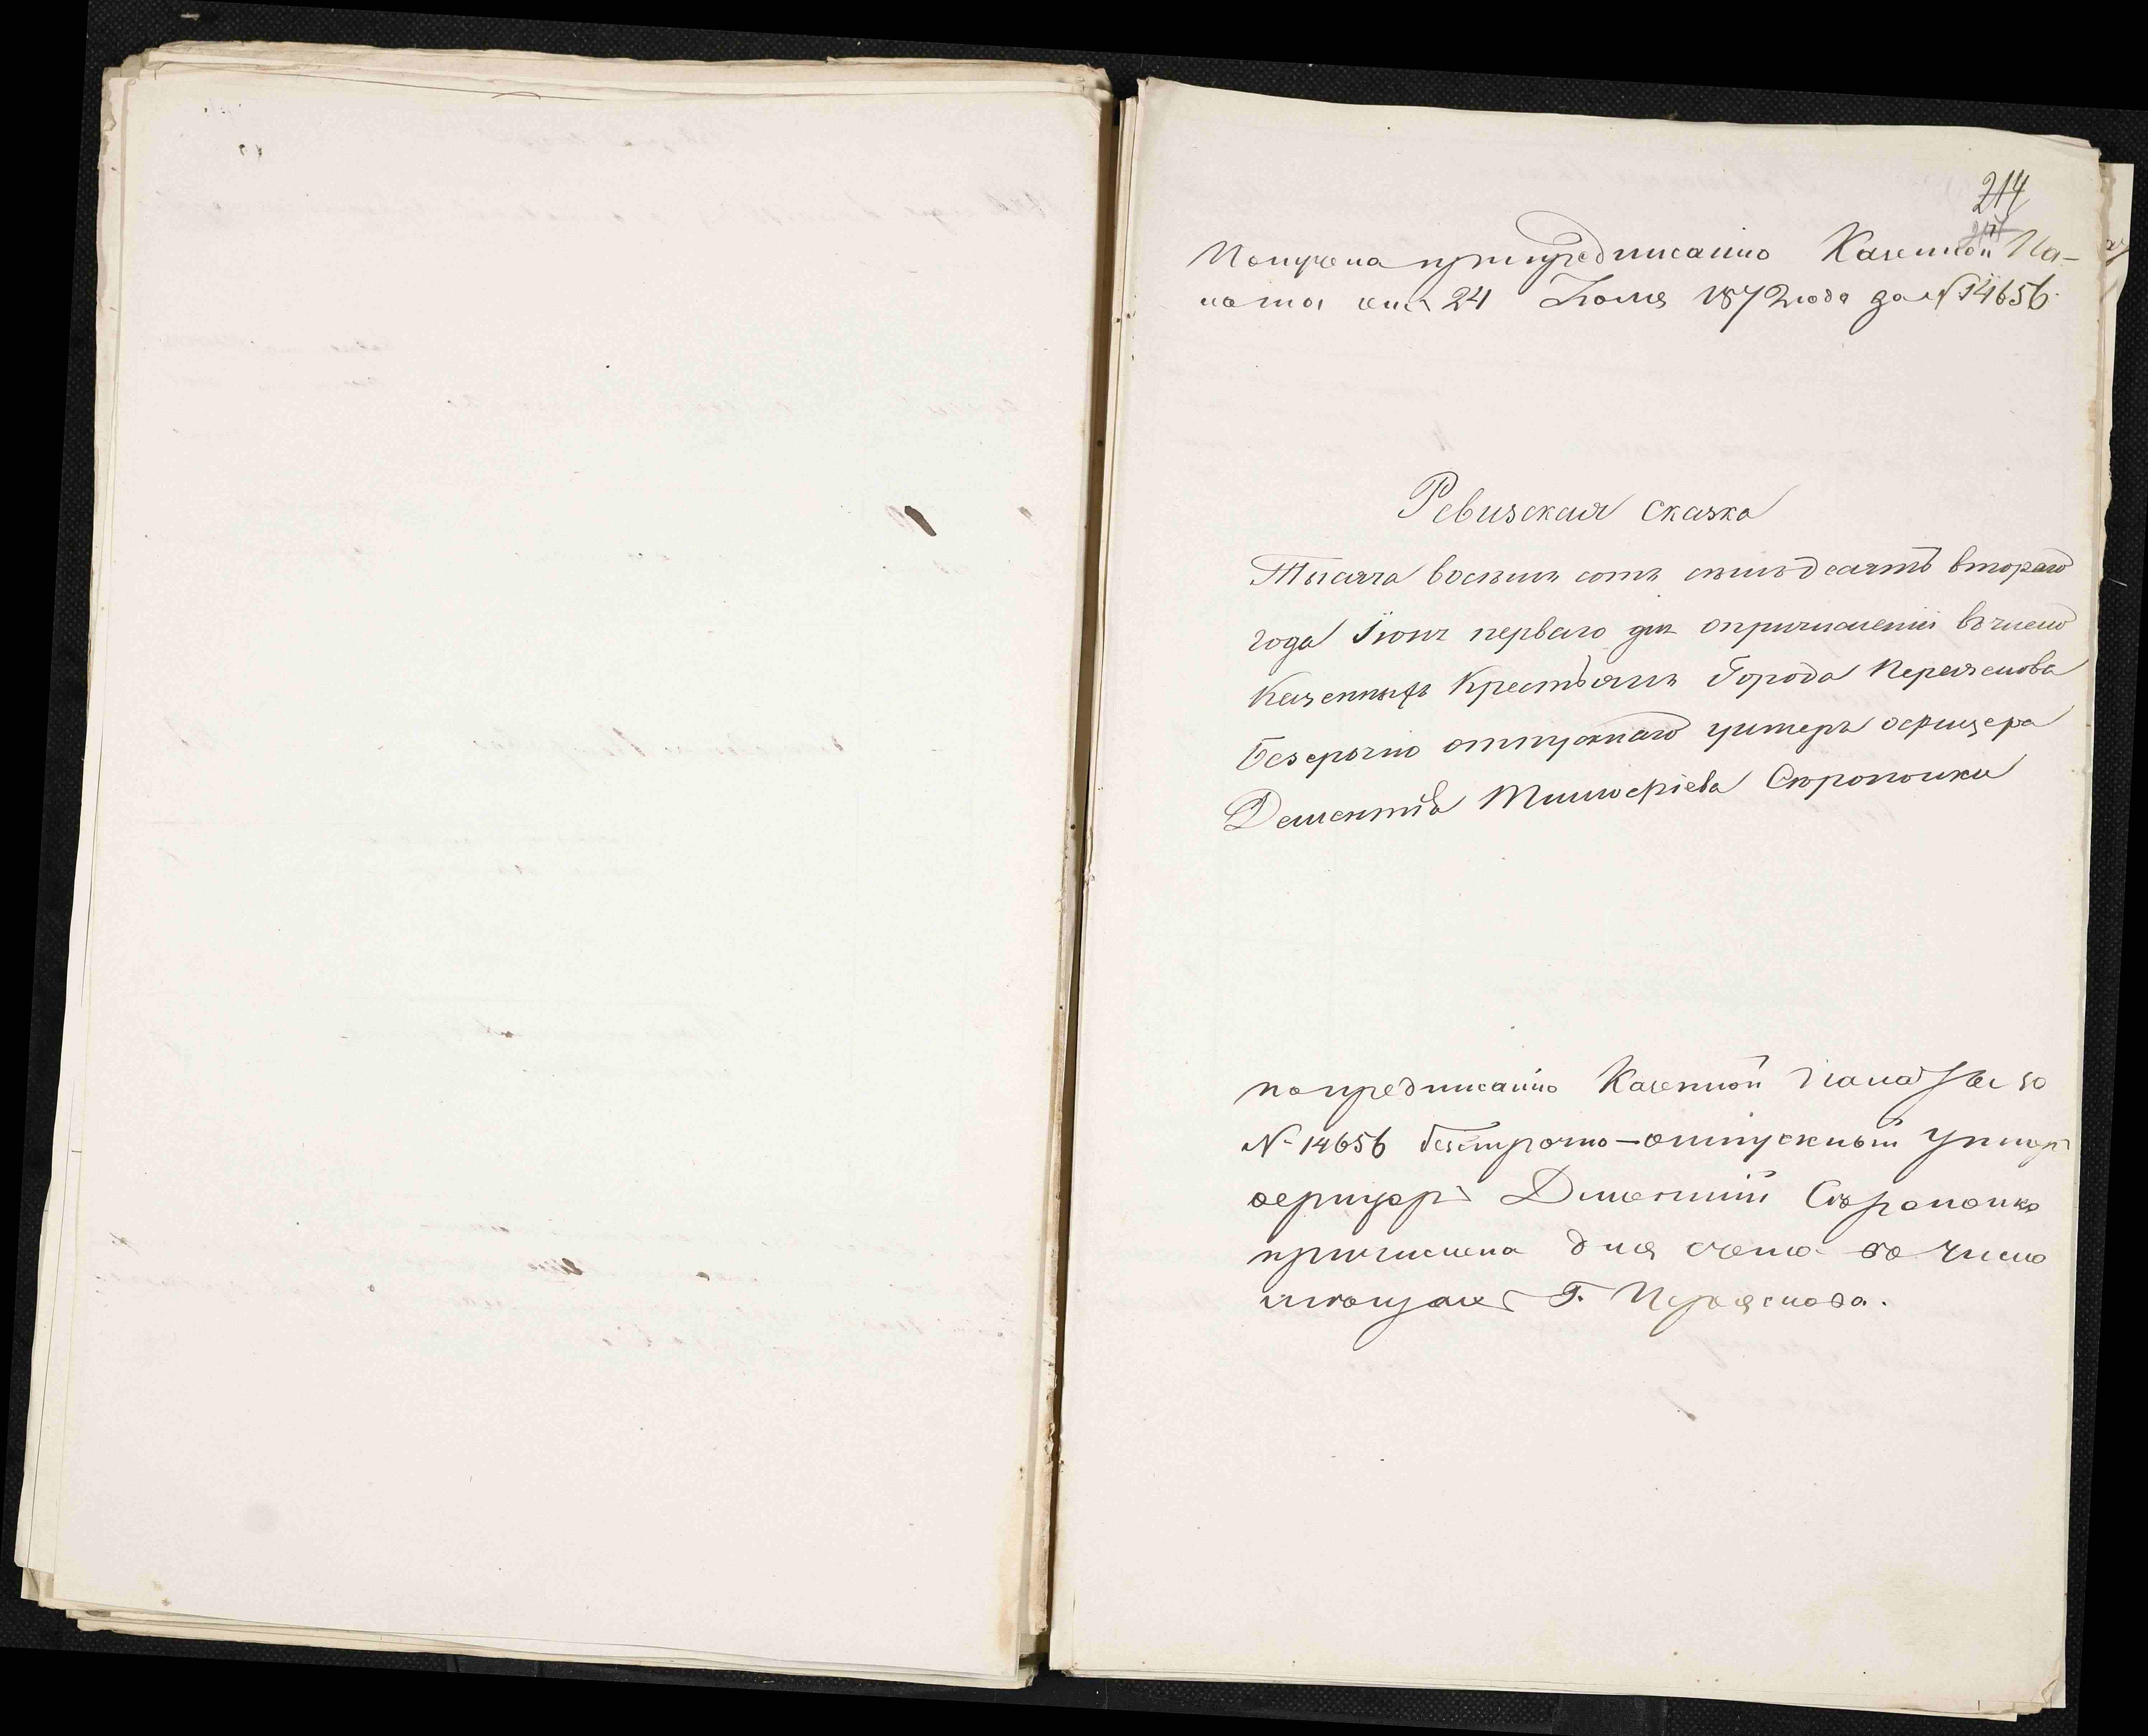 214
Получена при предписанiи Казенной Па-
латы отъ 24 Iюля 1872 года за № 14656.
Ревизская сказка
Тысяча восемь сотъ семьдесятъ втораго
года Iюня перваго дня о причисленiи въ число
Казенныхъ Крестьянъ Города Переяслова
безсрочно отпускнаго унтеръ офицера
Дементiя Тимофѣева Сѣропонки
по предписанiю Казенной Палаты за
№ 14656 безсрочно-отпускный Унтеръ
офицеръ Дементiй Сѣропонка
причисленъ для счета въ число
мѣщанъ Г. Переяслова.